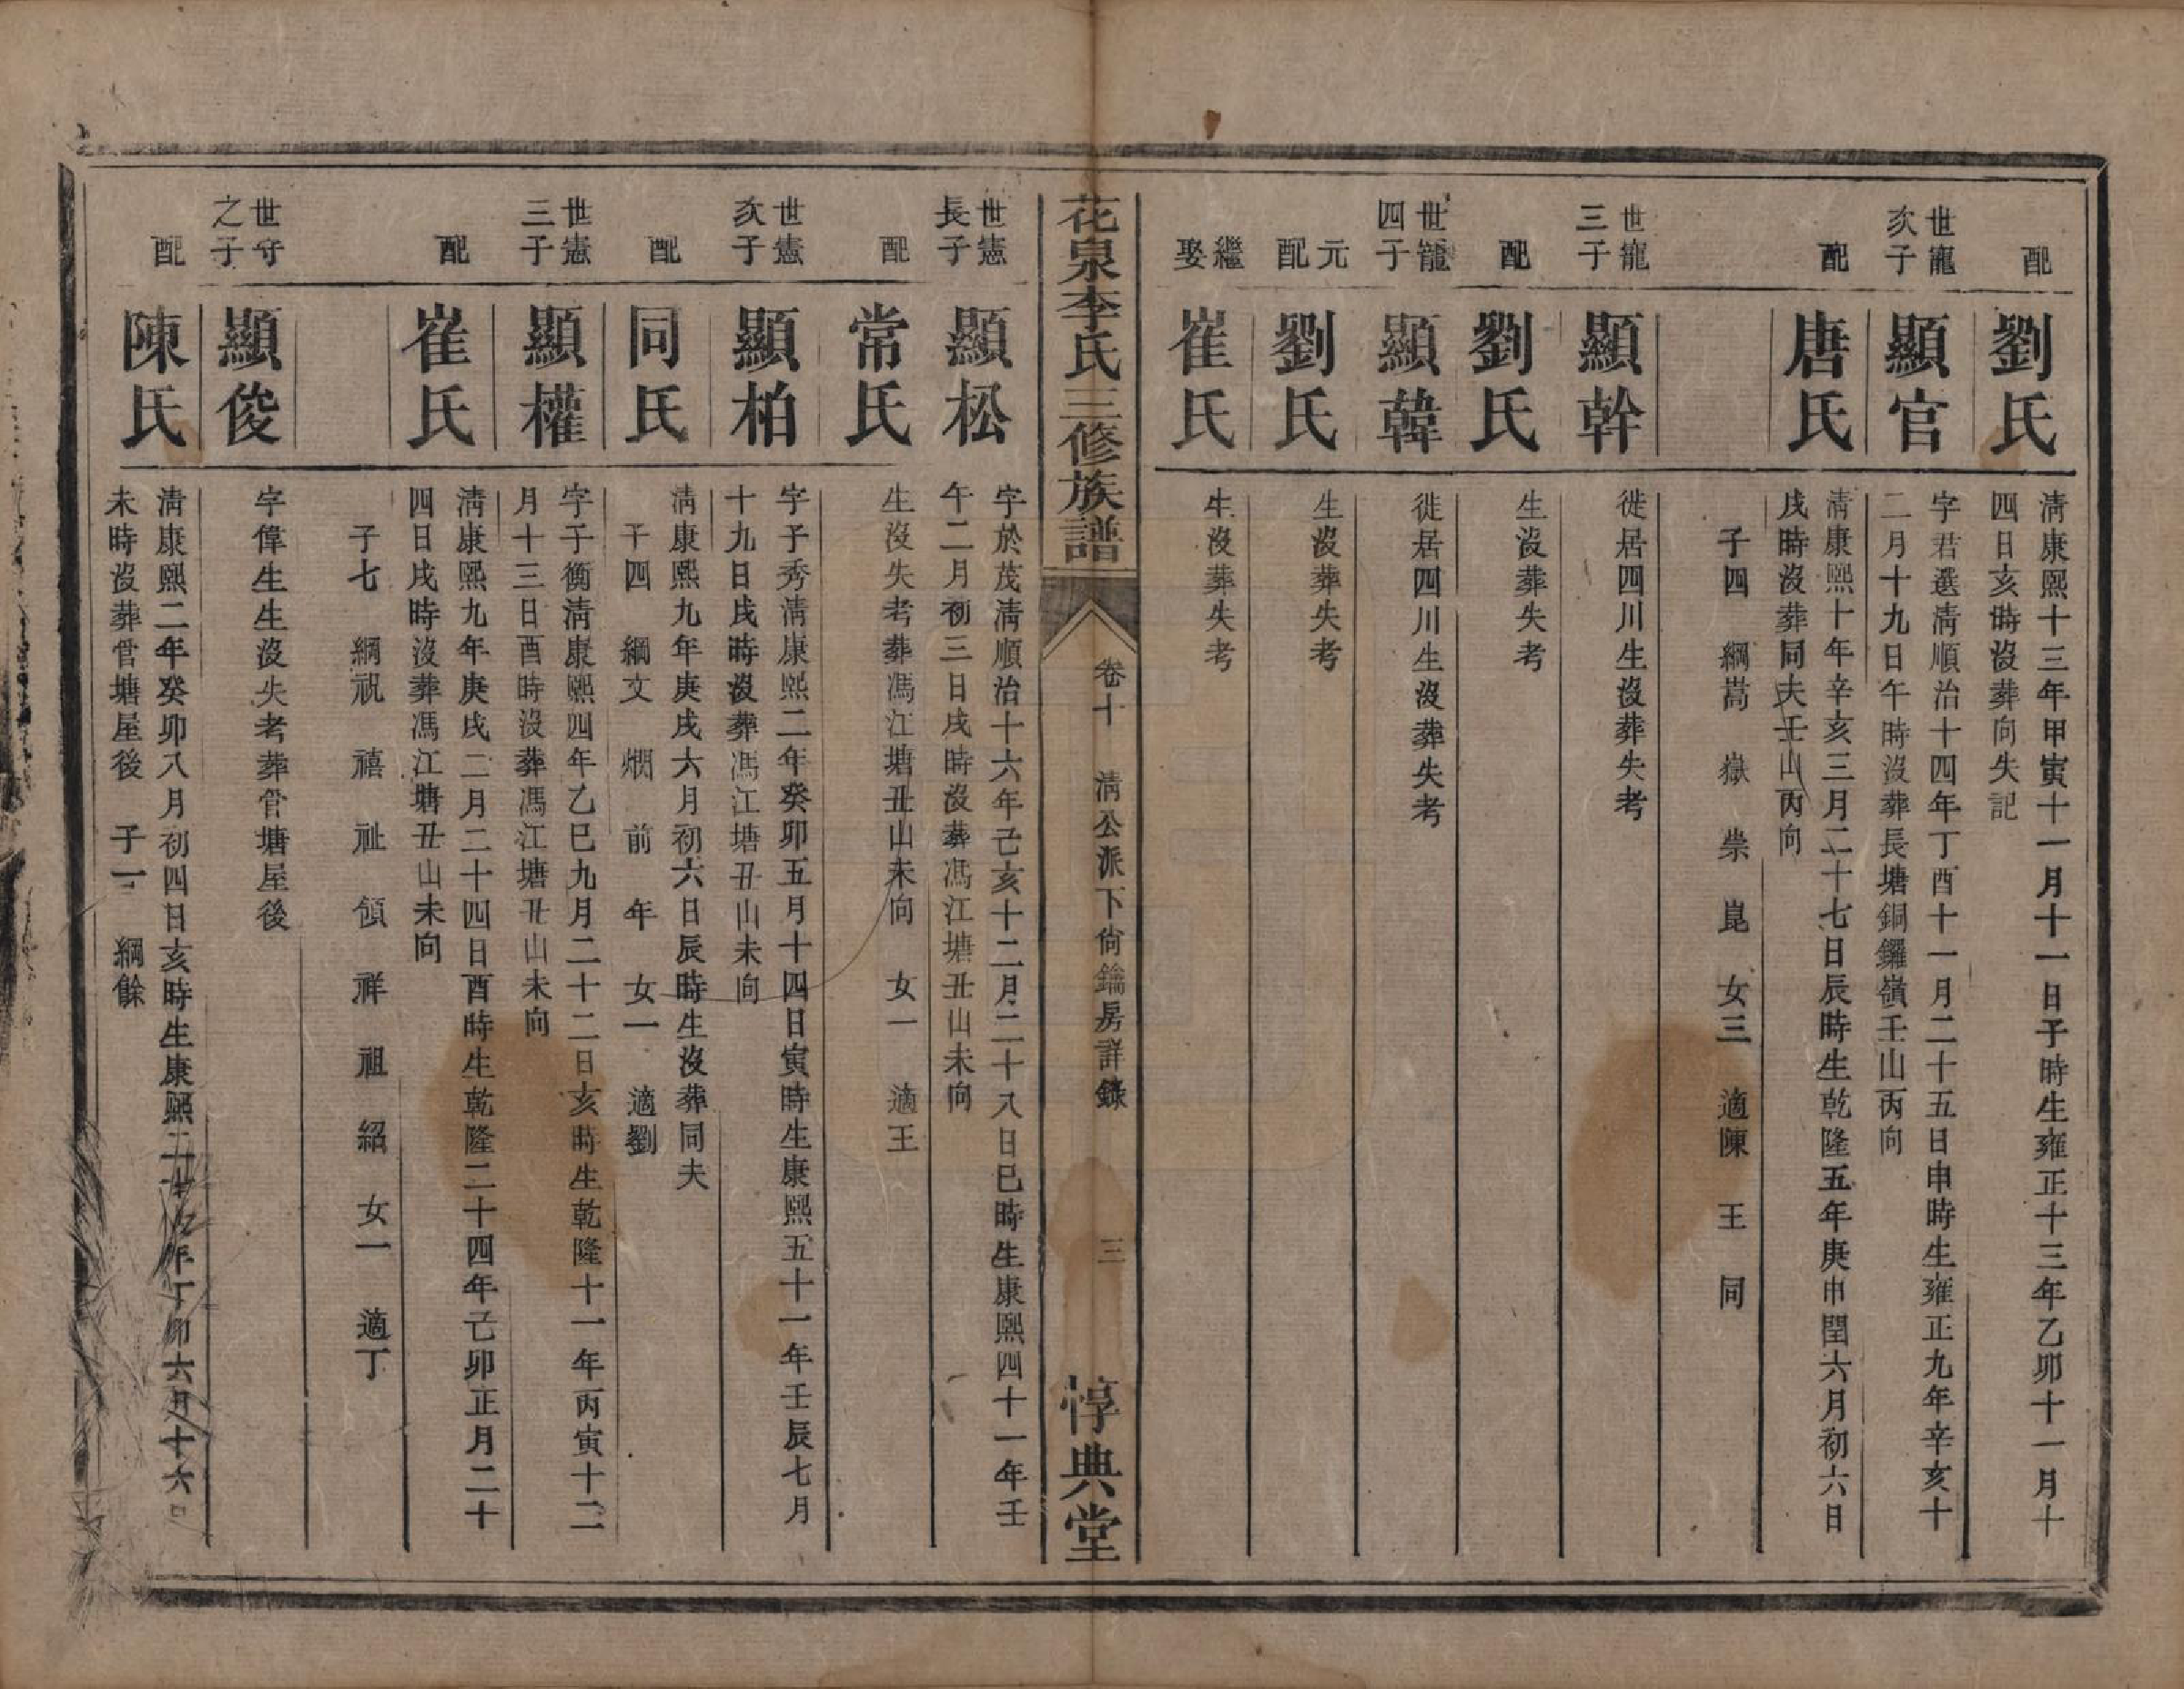 配
劉氏
淸康熙十三年甲寅十一月十一日子時生雍正十三年乙卯十一月十
四日亥時沒葬向失記
世寵
次子
顯官
字君選淸順治十四年丁酉十一月二十五日申時生雍正九年辛亥十
二月十九日午時沒葬長塘銅鑼嶺壬山丙向
配
唐氏
淸康熙十年辛亥三月二十七日辰時生乾隆五年庚申閏六月初六日
戌時沒葬同夫壬山丙向
子四 綱嵩 嶽 崇 崑 女三 適陳 王 同
世寵
三子
顯幹
徙居四川生沒葬失考
配
劉氏
生沒葬失考
世寵
四子
顯韓
徙居四川生沒葬失考
元
配
劉氏
生沒葬失考
繼
娶
崔氏
生沒葬失考
花泉李氏三修族譜
卷十 淸公派下尙鑰房詳錄 三
惇典堂
世憲
長子
顯松
字於茂淸順治十六年己亥十二月二十八日巳時生康熙四十一年壬
午二月初三日戌時沒葬馮江塘丑山未向
配
常氏
生沒失考葬馮江塘丑山未向 女一 適王
世憲
次子
顯柏
字予秀淸康熙二年癸卯五月十四日寅時生康熙五十一年壬辰七月
十九日戌時沒葬馮江塘丑山未向
配
同氏
淸康熙九年庚戌六月初六日辰時生沒葬同夫
子四 綱文 炳 前 年 女一 適劉
世憲
三子
顯權
字于衡淸康熙四年乙巳九月二十二日亥時生乾隆十一年丙寅十二
月十三日酉時沒葬馮江塘丑山未向
配
崔氏
淸康熙九年庚戌二月二十四日酉時生乾隆二十四年己卯正月二十
四日戌時沒葬馮江塘丑山未向
子七 綱祝 禧 祉 領 祥 祖 紹 女一 適丁
世守
之子
顯俊
字偉生生沒失考葬管塘屋後
配
陳氏
淸康熙二年癸卯八月初四日亥時生康熙二十六年丁卯六月十六日
未時沒葬管塘屋後 子一 綱餘